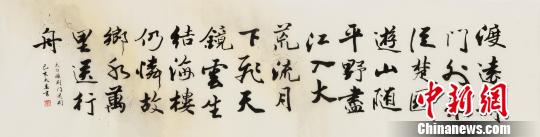 渡遠
門外
從楚國
遊山隨
平野盡
江入大
荒流月
下飛天
鏡雲生
結海樓
仍憐故
鄉水萬
里送行
舟
渡荊門送別
中新网